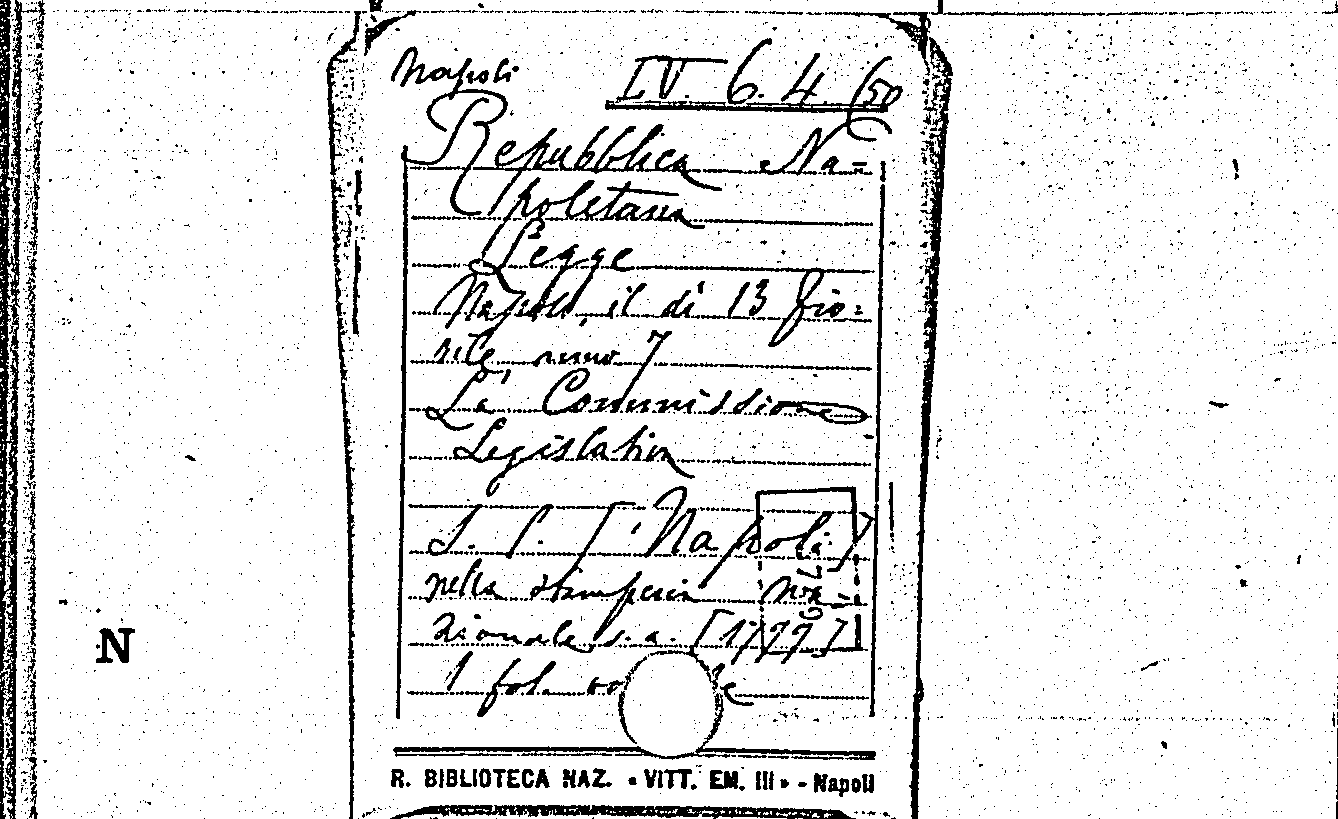 Napoli IV. 6. 4. (50
Repubblica Na=
poletana
Legge
Napoli, il di 13 fio=
rile anno 7
La Commissione
Legislativa
S. l. [: Napoli]
nella stamperia Na=
zionale s. a. [1799]
1 fol.
N
R. BIBLIOTECA NAZ. « VITT. EM. III » - Napoli